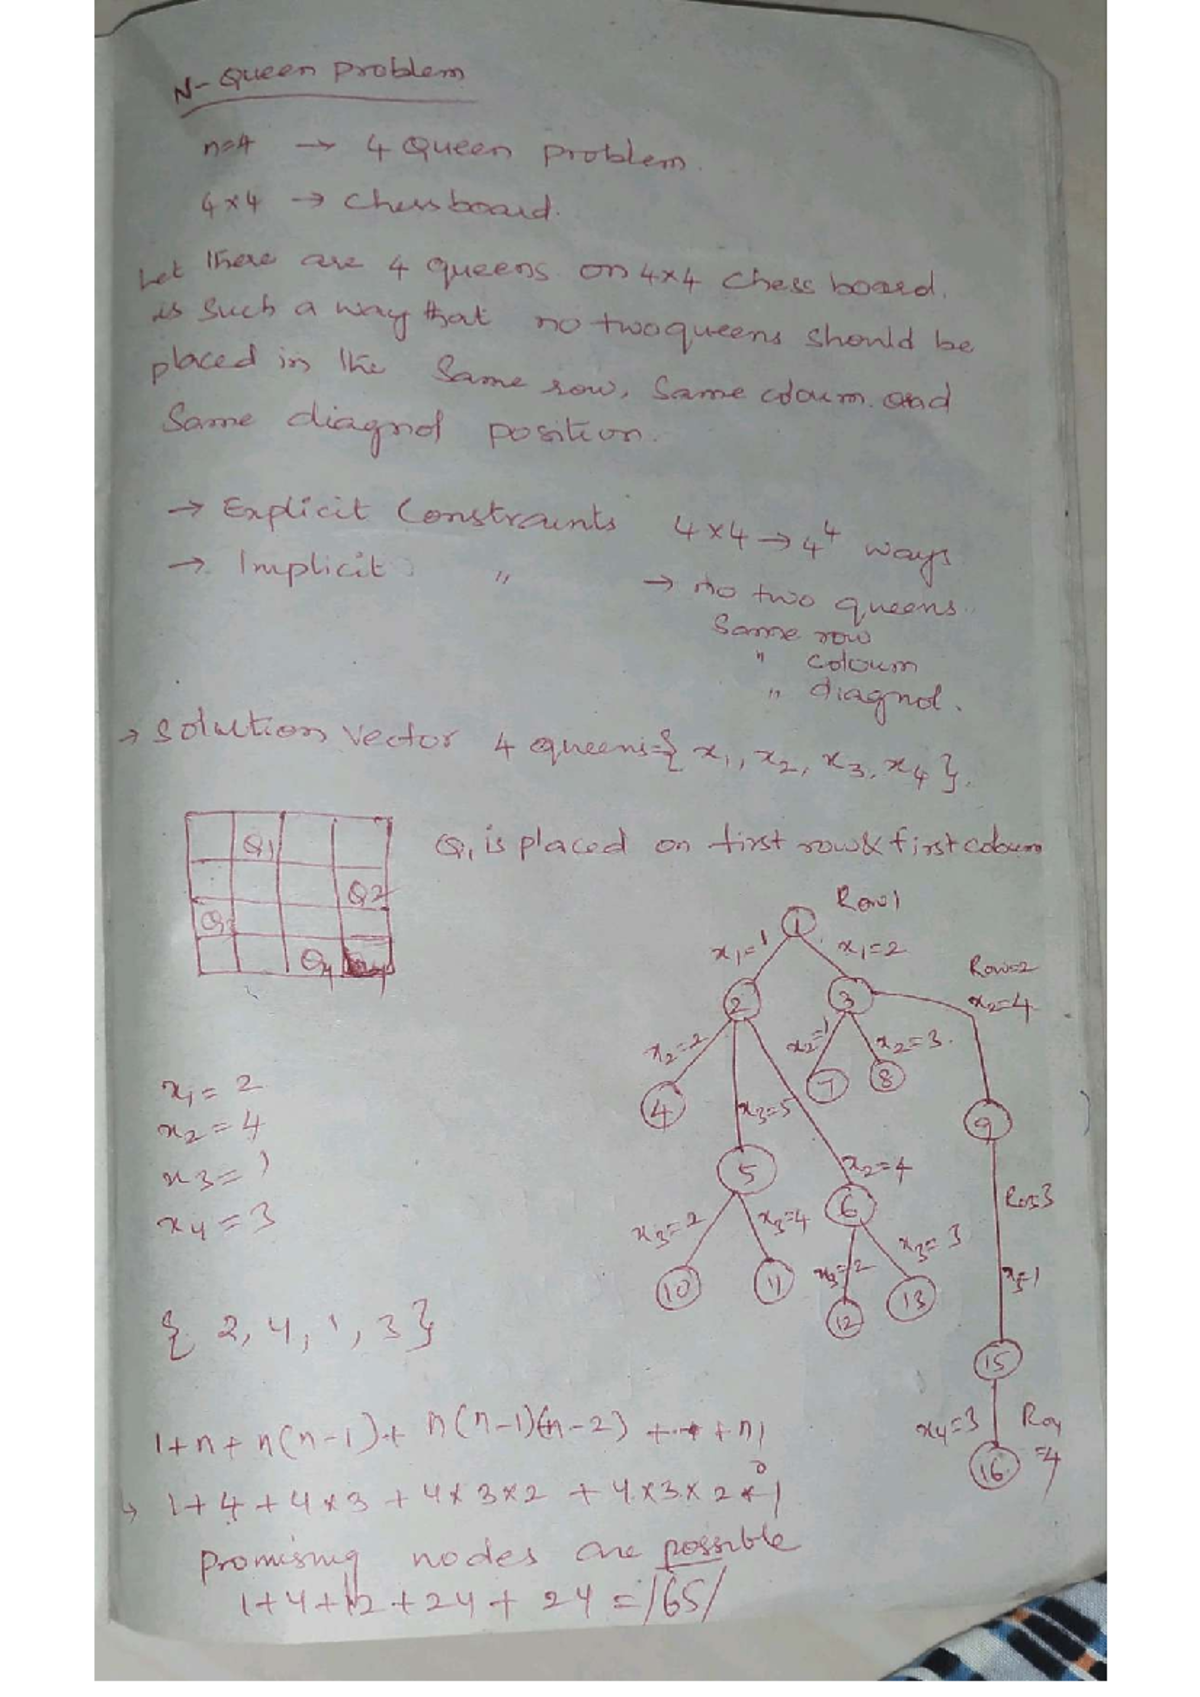 N-Queen problem
n=4 → 4 Queen problem.
4×4 → Chessboard.
Let there are 4 queens on 4×4 chess board.
is such a way that no two queens should be
placed in the same row, same coloum. and
same diagnol position.
→ Explicit Constraints 4×4 → 4⁴ ways
→ Implicit " → no two queens.
same row
" coloum
" diagnol.
→ Solution vector 4 queens={ x₁, x₂, x₃, x₄ }.
Q₁ is placed on first row & first coloum
Q1
Q2
Q3
Q4
Row1
1
x₁=1 x₁=2
Row=2
x₂=4
2 3
x₂=2 x₂=1 x₂=3.
4 7 8
x₃=5
9
5 x₂=4
6
Ro=3
x₃=2 x₃=4 x₃=2 x₃=3
x₃=1
10 11 12 13
15
x₄=3 Ro4
=4
16
x₁=2
x₂=4
x₃=1
x₄=3
{ 2, 4, 1, 3 }
1+n+n(n-1)+ n(n-1)(n-2) + .. + n!
↳ 1+4+4×3+4×3×2+4×3×2×1
Promising nodes are possible
1+4+12+24+24=/65/